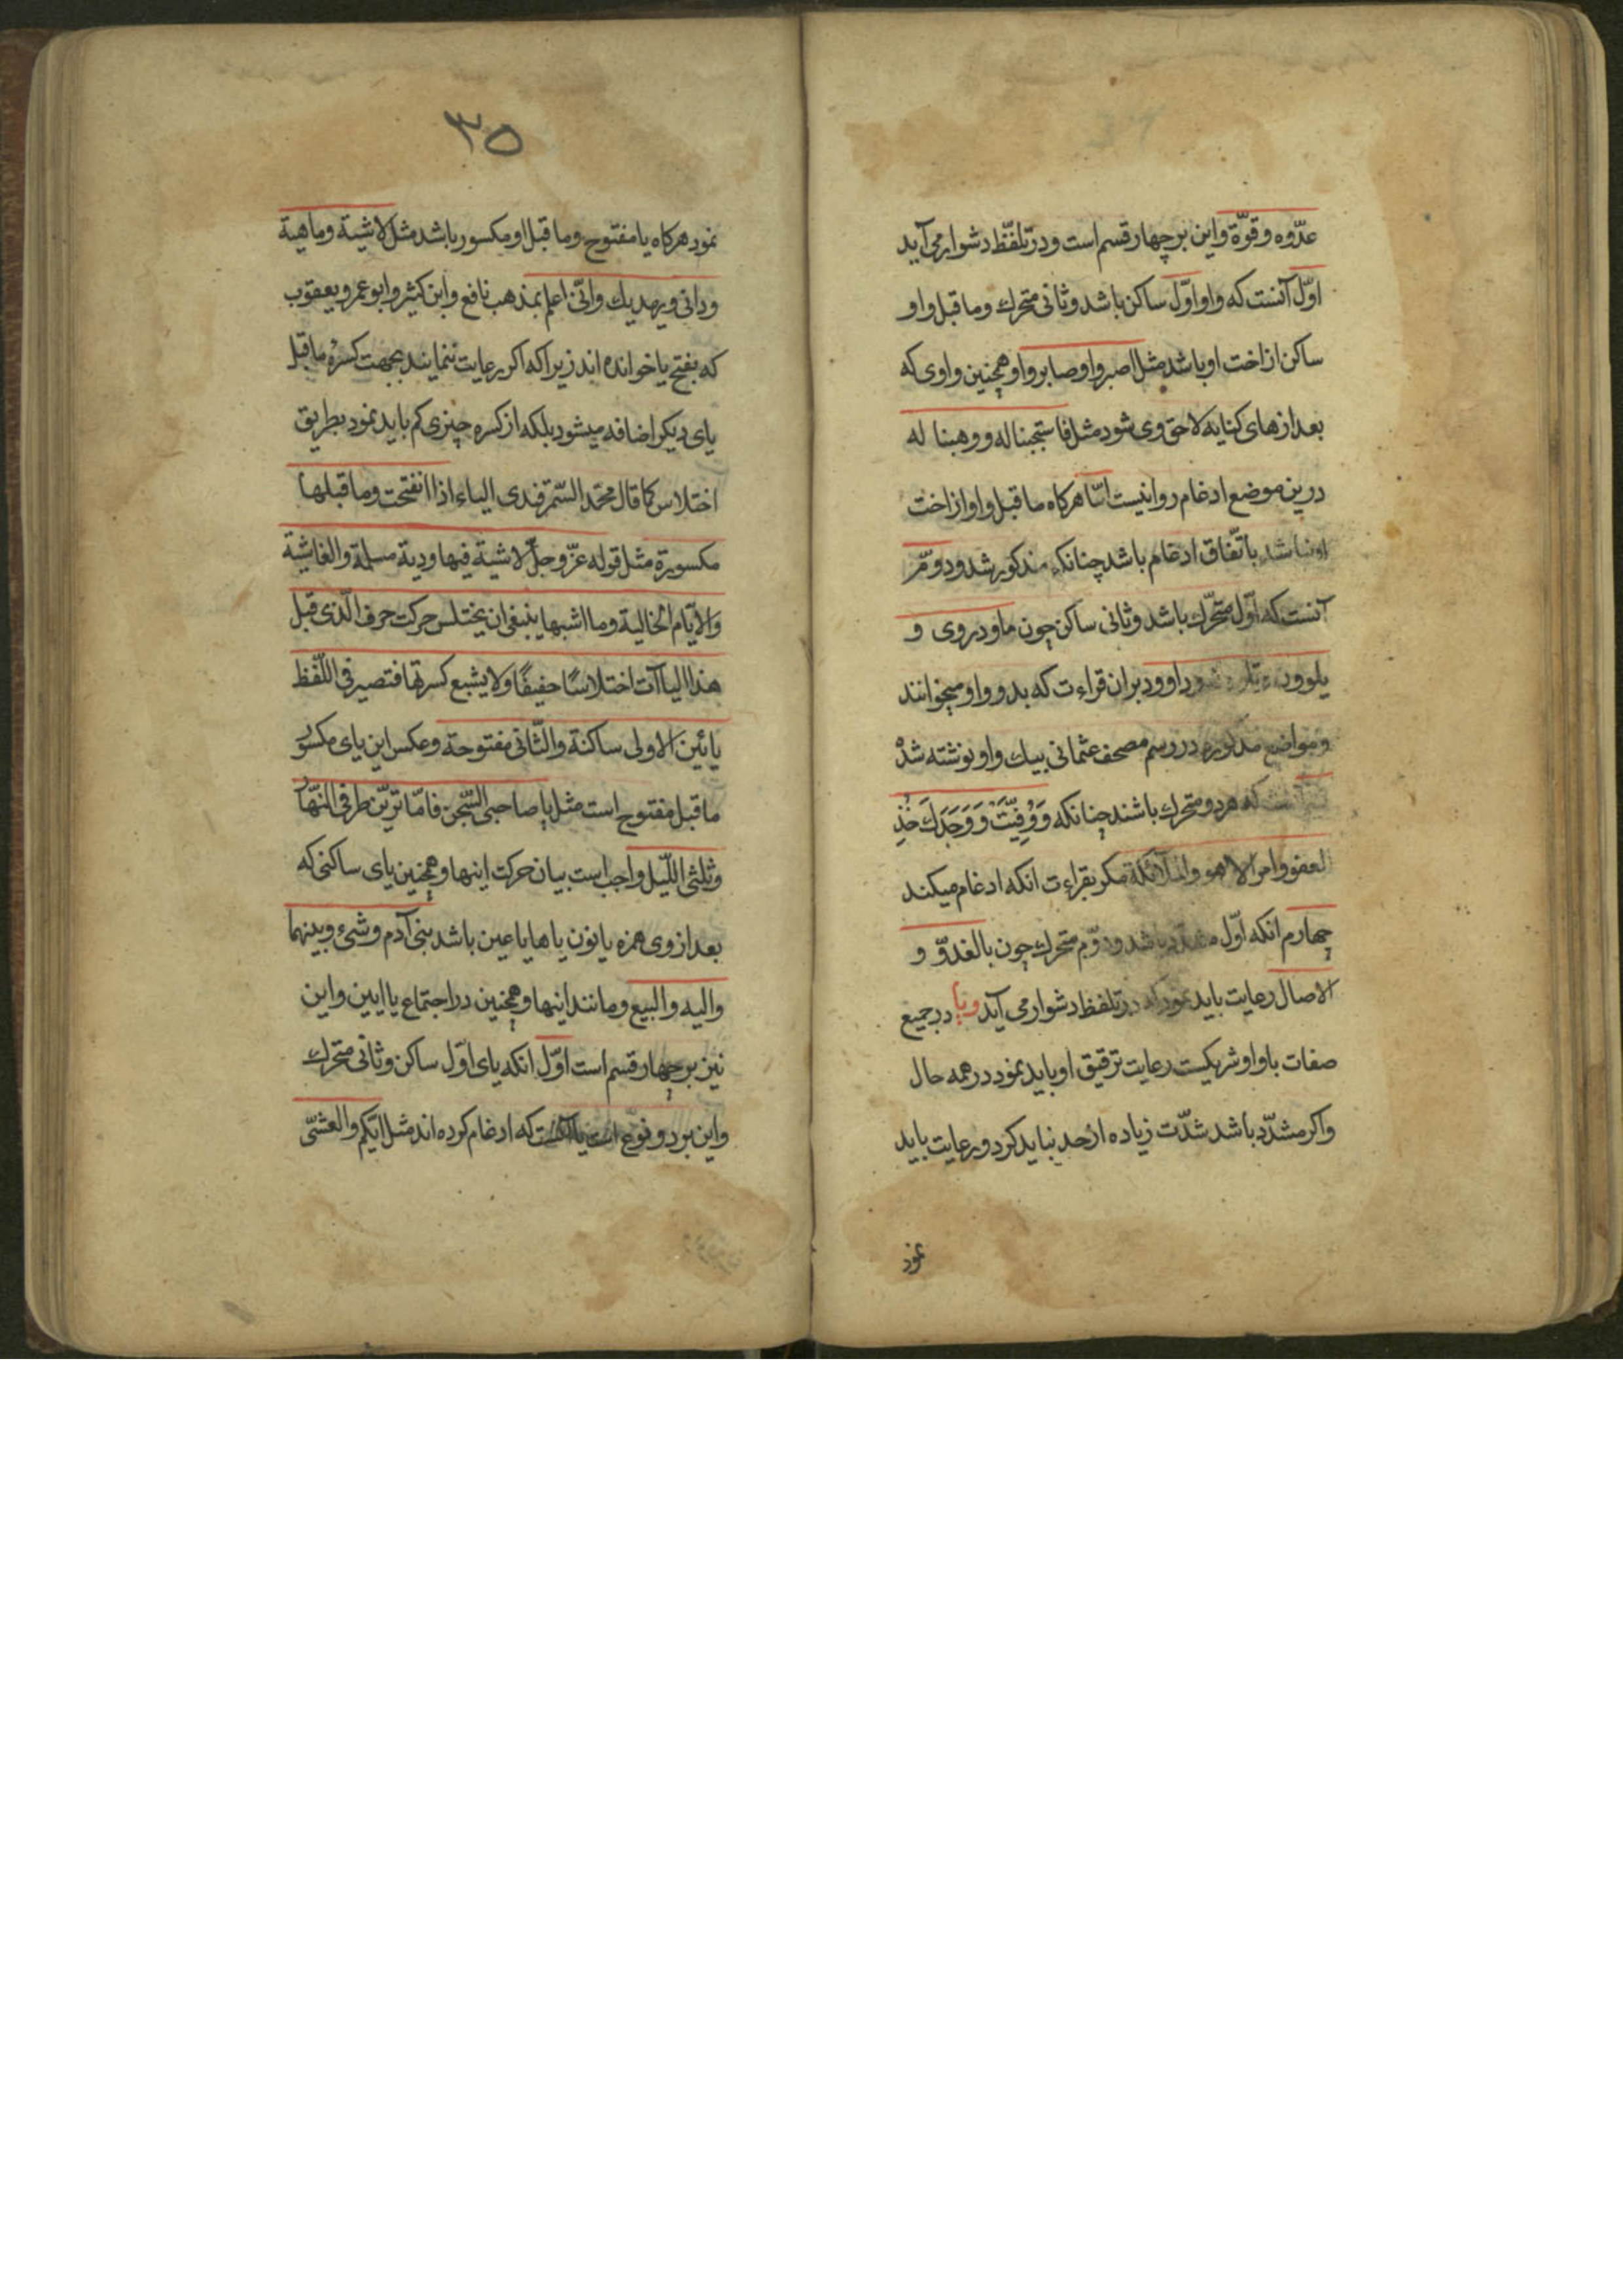 عدّوه وقوّة واین بر چهار قسم است ودر تلفّظ دشوار می آید
اوّل آنست که واو اوّل ساکن باشد وثانی متحرك وما قبل واو
ساکن از اخت او باشد مثل اصبروا وصابروا وهمچنین واوی که
بعد از های کنایه لاحق وی شود مثل فاستجبنا له ووهبنا له
درین موضع ادغام روا نیست امّا هرکاه ما قبل واو از اخت
او نباشد باتّفاق ادغام باشد چنانکه مذکور شد ودوّم
آنست که اوّل متحرّك باشد وثانی ساکن چون ما ووری و
یلوون وداوود بران قراءت که بدو واو میخوانند
ومواضع مذکوره در رسم مصحف عثمانی بیك واو نوشته شده
که هر دو متحرك باشند چنانکه وَوُفِّیَتْ وَوَجَدَكَ خُذِ
العفو وامر الا هو والملائکة مکر بقراءت انکه ادغام میکند
چهارم انکه اوّل مشدّد باشد ودوّم متحرك چون بالغدوّ و
الاصال رعایت باید نمود که در تلفظ دشوار می آید ویا در جمیع
صفات با واو شریکست رعایت ترقیق او باید نمود در همه حال
واکر مشدّد باشد شدّت زیاده از حد نباید کرد ورعایت باید
نمود
٣٥
نمود هرکاه یا مفتوح وما قبل او مکسور باشد مثل لاشیة وماهیة
ودانی ویهدیك وانّی اعلم بمذهب نافع وابن کثیر وابو عمرو یعقوب
که بفتح یا خوانده اند زیرا که اکر رعایت ننمایند بجهت کسرهٔ ما قبل
یای دیکر اضافه میشود بلکه از کسره چیزی کم باید نمود بطریق
اختلاس کما قال محمّد السّمرقندی الیاء اذا انفتحت وما قبلها
مکسورة مثل قوله عزّ وجلّ لاشیة فیها ودیة مسلمة والغاشیة
والایّام الخالیة وما اشبهها ینبغی ان یختلس حرکت حرف الّذی قبل
هذا الیاآت اختلاسًا خفیفًا ولا یشبع کسرتها فتصیر فی اللّفظ
یائین الاولی ساکنة والثّانی مفتوحة وعکس این یای مکسور
ما قبل مفتوح است مثل یا صاحبی السّجن فامّا تریّن طرفی النّهار
وثلثی اللّیل واجب است بیان حرکت اینها وهمچنین یای ساکنی که
بعد از وی همزه یا نون یا ها یا عین باشد بنی آدم وشیء وبینهما
والیه والبیع ومانند اینها وهمچنین در اجتماع یا ایین واین
نیز بر چهار قسم است اوّل انکه یای اوّل ساکن وثانی متحرك
واین بر دو نوع است که ادغام کرده اند مثل ایّکم والعشیّ